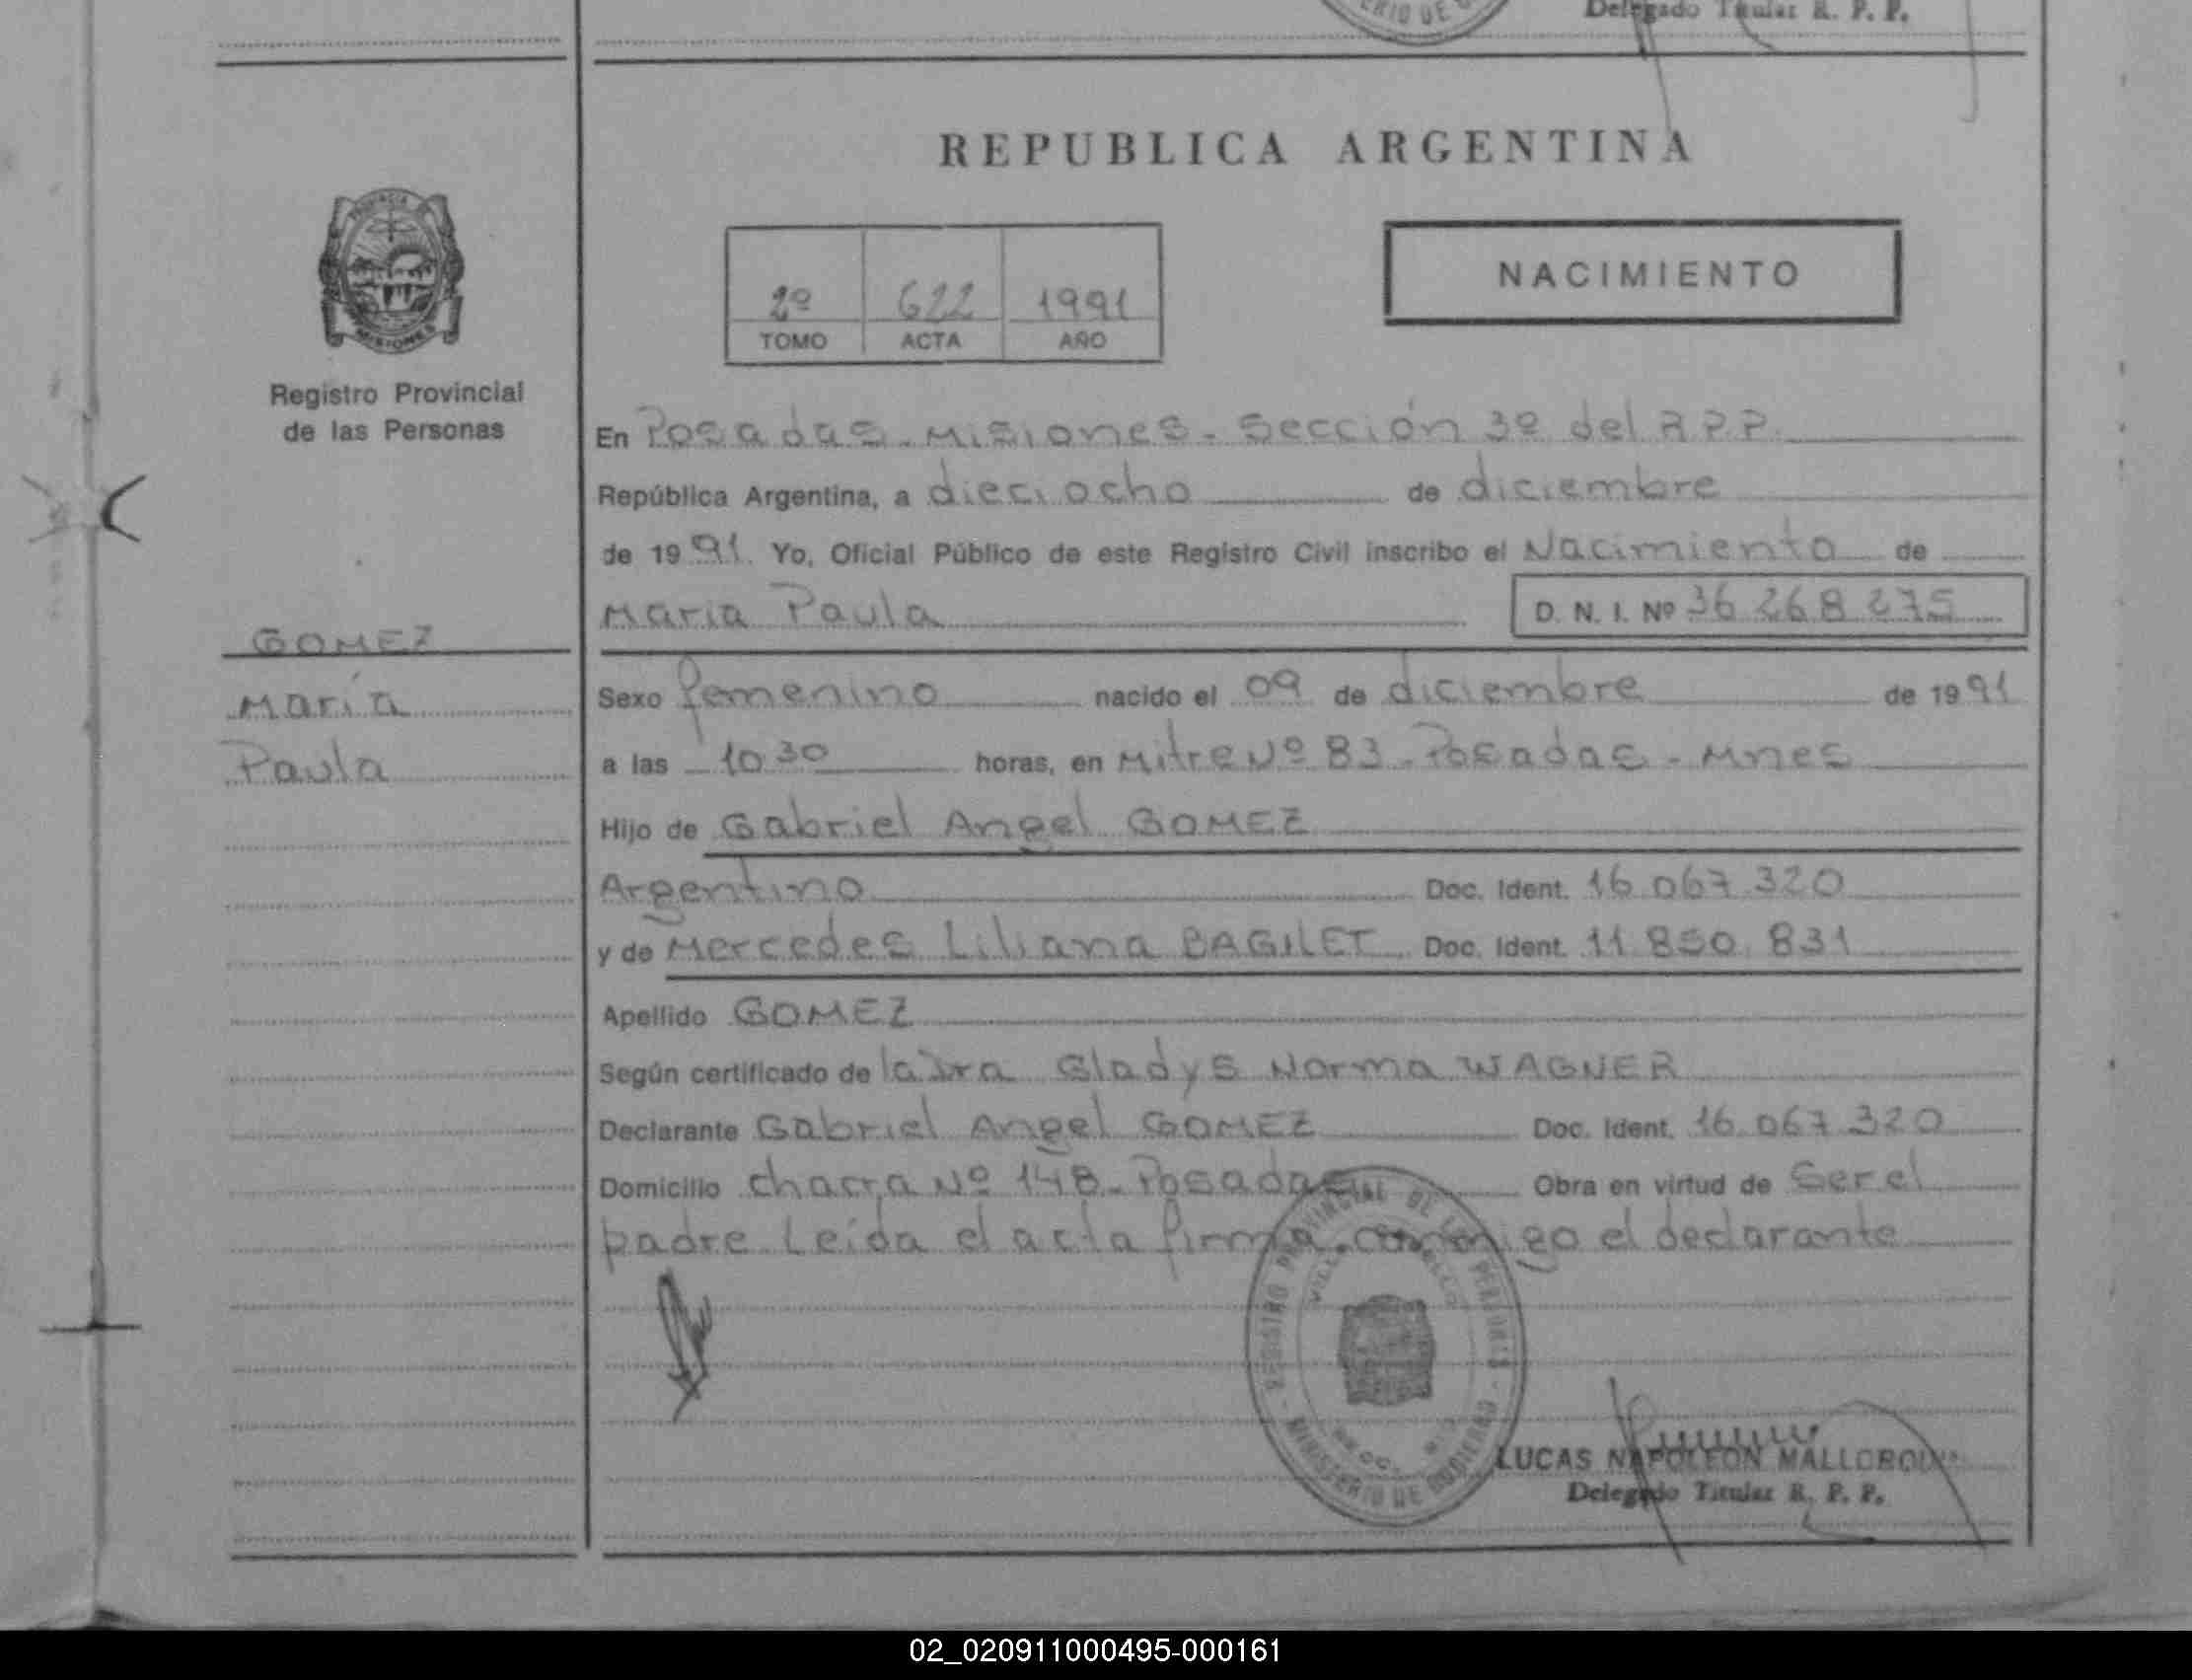 Delegado Titular R. P. P.
REPUBLICA ARGENTINA
NACIMIENTO
2º 622 1991
TOMO ACTA AÑO
PROVINCIA
MISIONES
Registro Provincial
de las Personas
GOMEZ
María
Paula
En Posadas - Misiones - Sección 3º del R.P.P.
República Argentina, a dieciocho de diciembre
de 1991. Yo, Oficial Público de este Registro Civil inscribo el Nacimiento de
María Paula D. N. I. Nº 36 268 275
Sexo femenino nacido el 09 de diciembre de 1991
a las 10 30 horas, en Mitre Nº 83 - Posadas - Mnes
Hijo de Gabriel Angel GOMEZ
Argentino Doc. Ident. 16 067 320
y de Mercedes Liliana BAGILET Doc. Ident. 11 850 831
Apellido GOMEZ
Según certificado de la Dra Gladys Norma WAGNER
Declarante Gabriel Angel GOMEZ Doc. Ident. 16 067 320
Domicilio Chacra Nº 148 - Posadas Obra en virtud de ser el
padre Leída el acta firma conmigo el declarante
REGISTRO PROVINCIAL DE LAS PERSONAS - MINISTERIO DE GOBIERNO
LUCAS NAPOLEON
Delegado Titular R. P. P.
02_020911000495-000161